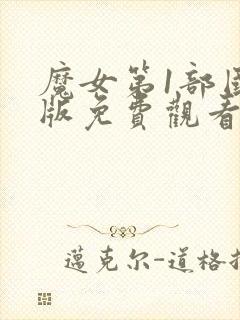 魔女第1部
版免費觀看
邁克尔-道格